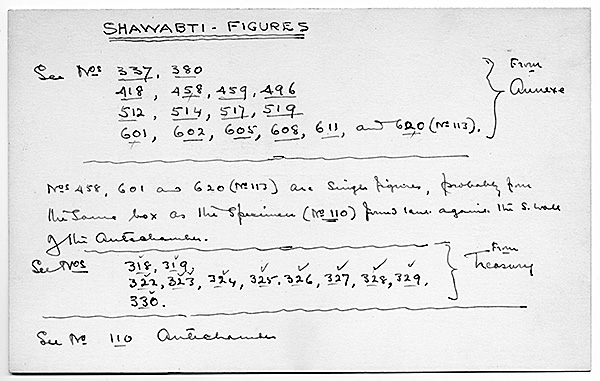 SHAWABTI - FIGURES
See Nos 337, 380
418, 458, 459, 496
512, 514, 517, 519
601, 602, 605, 608, 611, and 620 (No 113).
From
Annexe
Nos 458, 601 and 620 (No 113) are single figures, probably from
the same box as the specimen (No 110) found against the S. wall
of the Antechamber.
See Nos 318, 319,
322, 323, 324, 325, 326, 327, 328, 329,
330.
From
Treasury
See No 110 Antechamber